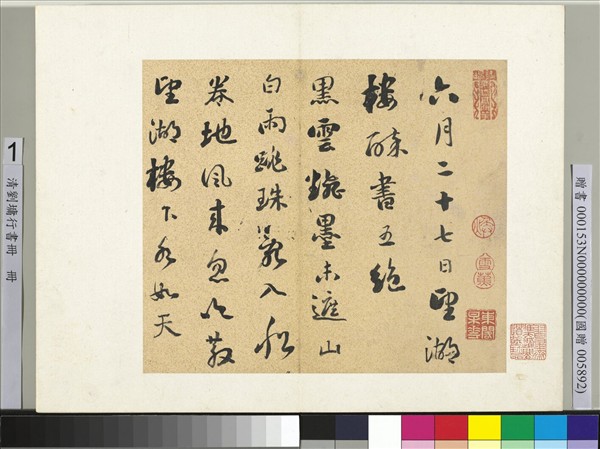 六月二十七日望湖
樓醉書五絕
黑雲翻墨未遮山
白雨跳珠亂入船
卷地風來忽吹散
望湖樓下水如天
東閣
1
清劉墉行書冊 冊
贈書 000153N000000000(國贈 005892)